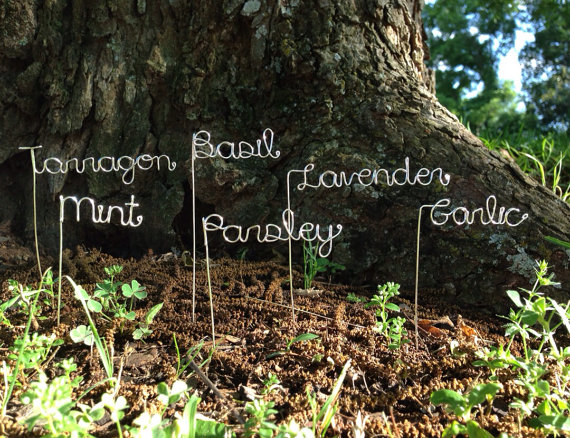 Tarragon
Basil
Lavender
Mint
Parsley
Garlic